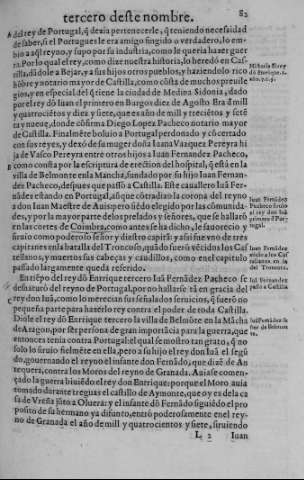 tercero deste nombre.
82
del rey de Portugal, q̃ dezia pertenecerle, q̃ teniendo necessidad
de saber, si el Portugues le era amigo fingido o verdadero, lo em-
bio a aq̃l reyno, y supo por su industria, como le queria hazer guer
ra. Por lo qual el rey, como dize nuestra historia, lo heredò en Cas-
tilla, dãdole a Bejar, y a sus hijos otros pueblos, y haziendolo rico
hõbre y notario mayor de Castilla, como cõsta de muchos preuile
gios, y en especial del q̃ tiene la ciudad de Medina Sidonia, dado
por el rey dõ Iuan el primero en Burgos diez de Agosto Era d̃ mill
y quatrocientos y diez y siete, que es año de mill y trecientos y sete
ta y nueue, donde cõfirma Diego Lopez Pacheco notario mayor
de Castilla. Finalmẽte boluio a Portugal perdonado y cõcertado
con sus reyes, y dexó de su muger doña Iuana Vazquez Pereyra hi
ja de Vasco Pereyra entre otros hijos a Iuan Fernandez Pacheco,
como consta por la escriptura de erection del hospital, q̃ està en la
villa de Belmonte en la Mancha, fundado por su hijo Iuan Fernan-
dez Pacheco, despues que passò a Castilla. Este cauallero Iuã Fer-
nãdez estando en Portugal, assi que obtuuo la corona del reyno
a don Iuan Maestre de Auis, pero siẽdo elegido por las comunida-
des, y por la mayor parte delos prelados y señores, que se hallarõ
en las cortes de Coimbra, como antes se ha dicho, le fauorecio y
siruio como poderoso señor y diestro capitã: y assi fue vno de tres
capitanes en la batalla del Troncoso, quãdo fuerõ vẽcidos los Cas
tellanos, y muertos sus cabeças y caudillos, como en el capitulo
passado largamente queda referido.
En tiẽpo del rey dõ Enrique tercero Iuã Fernãdez Pacheco se
desnaturò del reyno de Portugal, por no hallarse tã en gracia del
rey don Iuã, como lo merecian sus señalados seruicios, q̃ fuerõ no
pequeña parte para hazerlo rey contra el poder de toda Castilla.
Diole el rey dõ Enrique tercero la villa de Belmõte en la Mãcha
de Aragon, por ser persona de gran importãcia para la guerra, que
entonces tenia contra Portugal: el qual se mostro tan grato, q̃ no
solo lo siruio fielmẽte en ella, pero a su hijo el rey don Iuã el segũ-
do, gouernando el reyno el infante don Fernãdo, que dizẽ de An
tequera, contra los Moros del reyno de Granada. Auiase comen-
çado la guerra biuiẽdo el rey don Enrique: porque el Moro auia
tomado durante treguas el castillo de Aymonte, que oy es de la ca
sa de Vreña jũto a Oluera: y el infante dõ Fernãdo siguiẽdo el pro
posito de su hermano ya difunto, entrò poderosamente en el rey-
no de Granada el año de mill y quatrocientos y siete, siruiendo
L 2 Iuan
Iuan Fernãdez
Pacheco